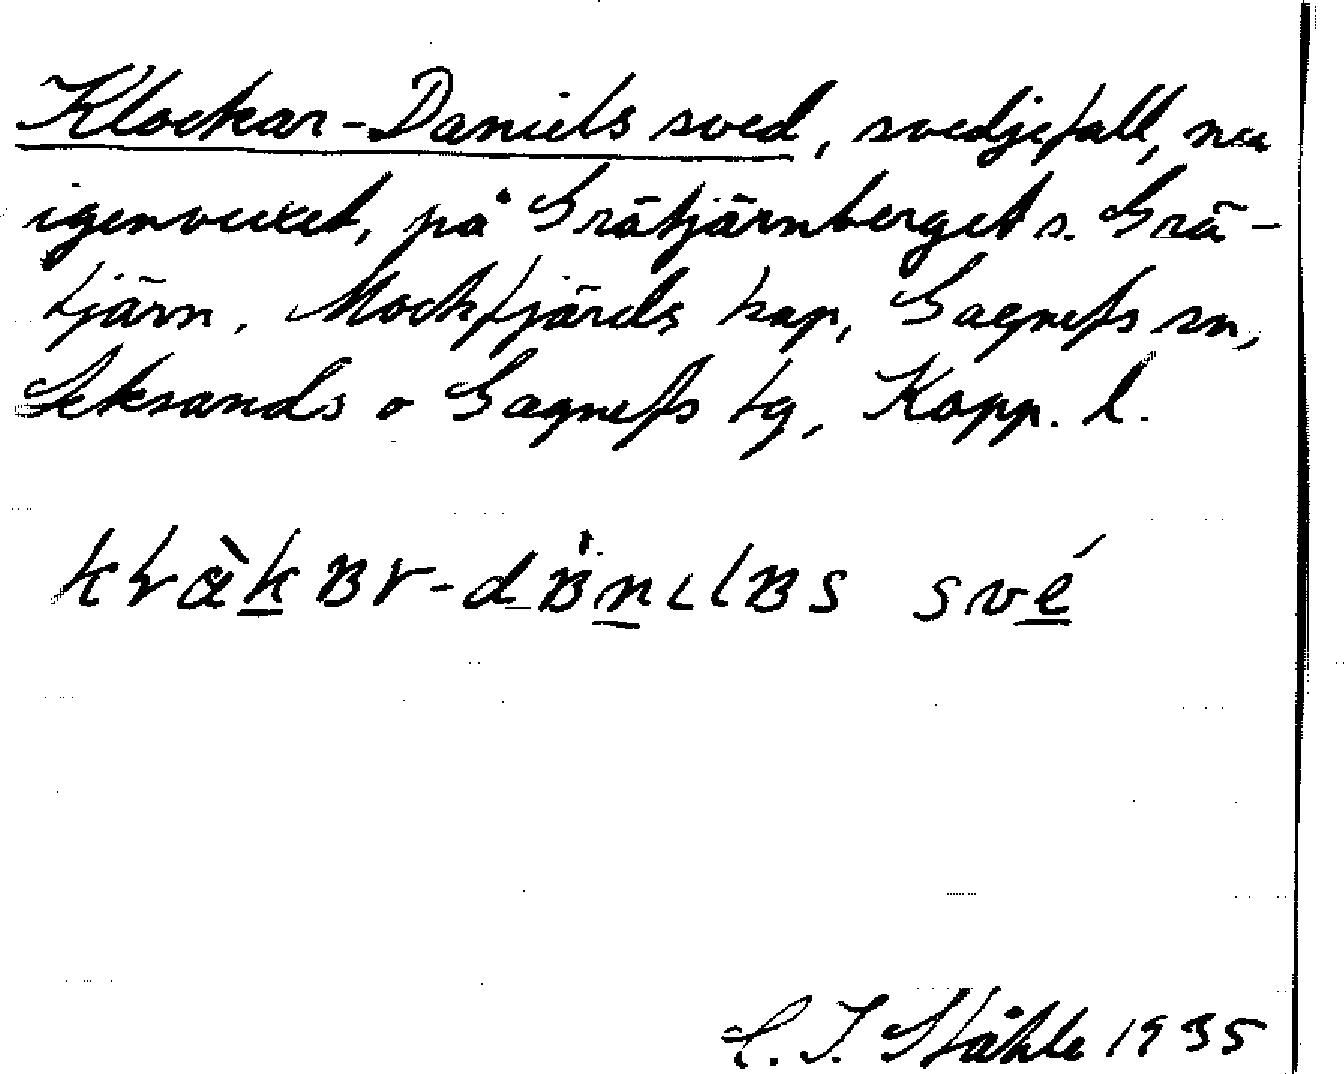 Klockar-Daniels sved, svedjefall, nu
igenvuxet, på Gråtjärnberget s. Grå-
tjärn, Mockfjärds kap, Gagnefs sn,
Leksands o Gagnefs tg, Kopp. l.
C. I. Ståhle 1935